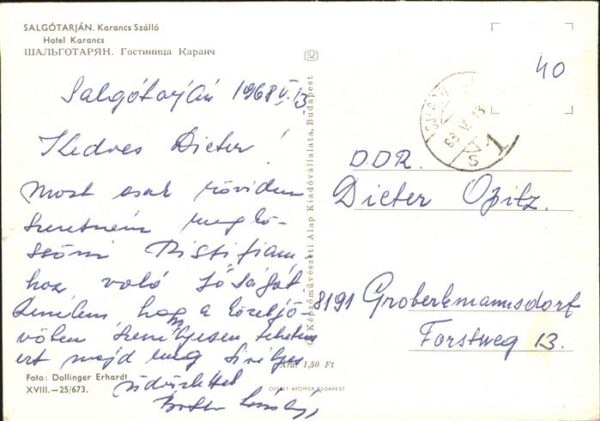 SALGÓTARJÁN. Karancs Szálló
Hotel Karancs
ШАЛЬГОТАРЯН. Гостиница Каранч
Salgótarján 1968 V. 13
Kedves Dieter!
Most csak röviden
szeretném megkö-
szönni Kistifiam
hoz való jóságát
Remélem hogy a közeljö-
vőben személyesen tehetem
ezt majd meg Szívélyes
üdvözlettel
Foto: Dollinger Erhardt
XVIII.—25/673.
Képzőművészeti Alap Kiadóvállalata, Budapest
Ára: 1,50 Ft
OFFSET-NYOMDA BUDAPEST
40
D.D.R.
Dieter Opitz.
8191 Groberkmannsdorf
Forstweg 13.